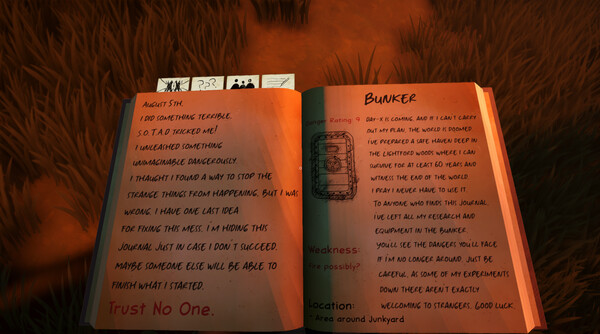 August 5th.
I did something terrible.
S.O.T.A.D tricked me!
I unleashed something
unimaginable dangerously.
I thaught I found a way to stop the
strange things from happening, but I was
wrong. I have one last idea
for fixing this mess. I'm hiding this
journal just in case I don't succeed.
Maybe someone else will be able to
finish what I started.
Trust No One.
Bunker
Danger Rating: 4
Weakness:
possibly?
Location:
- Area around Junkyard
Day-X is coming, and if I can't carry
out my plan, the world is doomed.
I've prepared a safe haven deep in
the Lightford woods where I can
survive for at least 60 years and
witness the end of the world.
I pray I never have to use it.
To anyone who finds this journal,
I've left all my research and
equipment in the bunker.
You'll see the dangers you'll face
if I'm no longer around. Just be
careful, as some of my experiments
down there aren't exactly
welcoming to strangers. Good luck.